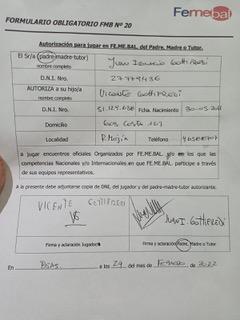 Femebal
FORMULARIO OBLIGATORIO FMB Nº 20
Autorización para jugar en FE.ME.BAL. del Padre, Madre o Tutor.
El Sr/a (padre-madre-tutor) nombre completo Juan Ignacio Gottifredi
D.N.I. Nro. 27779436
AUTORIZA a su hijo/a nombre completo Vicente Gottifredi
D.N.I. Nro. 51.129.638 Fecha. Nacimiento 30-05-2011
Domicilio
Localidad Teléfono
a jugar encuentros oficiales Organizados por FE.ME.BAL. y/o en los que las
competencias Nacionales y/o Internacionales en que FE.ME.BAL. participe a través
de sus equipos representativos.
A la presente debe adjuntarse copia de DNI, del jugador y del padre-madre-tutor autorizante.
VICENTE GOTTIFREDI
JUAN I. GOTTIFREDI
Firma y aclaración Jugador/a
Firma y aclaración Padre, Madre o Tutor
En BSAS. a los 24 del mes de Febrero de 2022